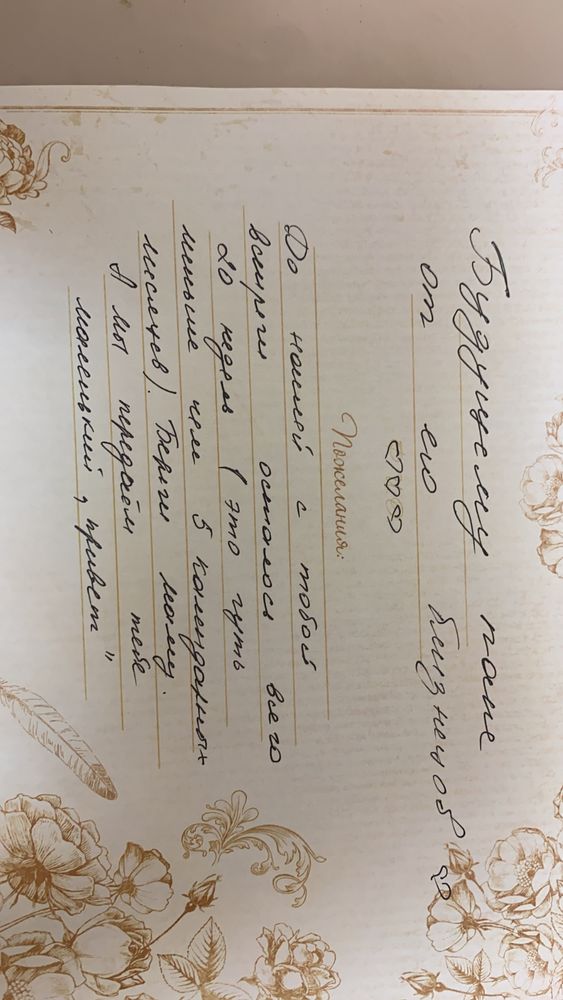 Будущему папе
от его близнецов
Пожелания:
До нашей с тобой
встречи осталось всего
20 недель (это чуть
меньше чем 5 календарных
месяцев). Береги маму.
А мы передаём тебе
маленький „привет”